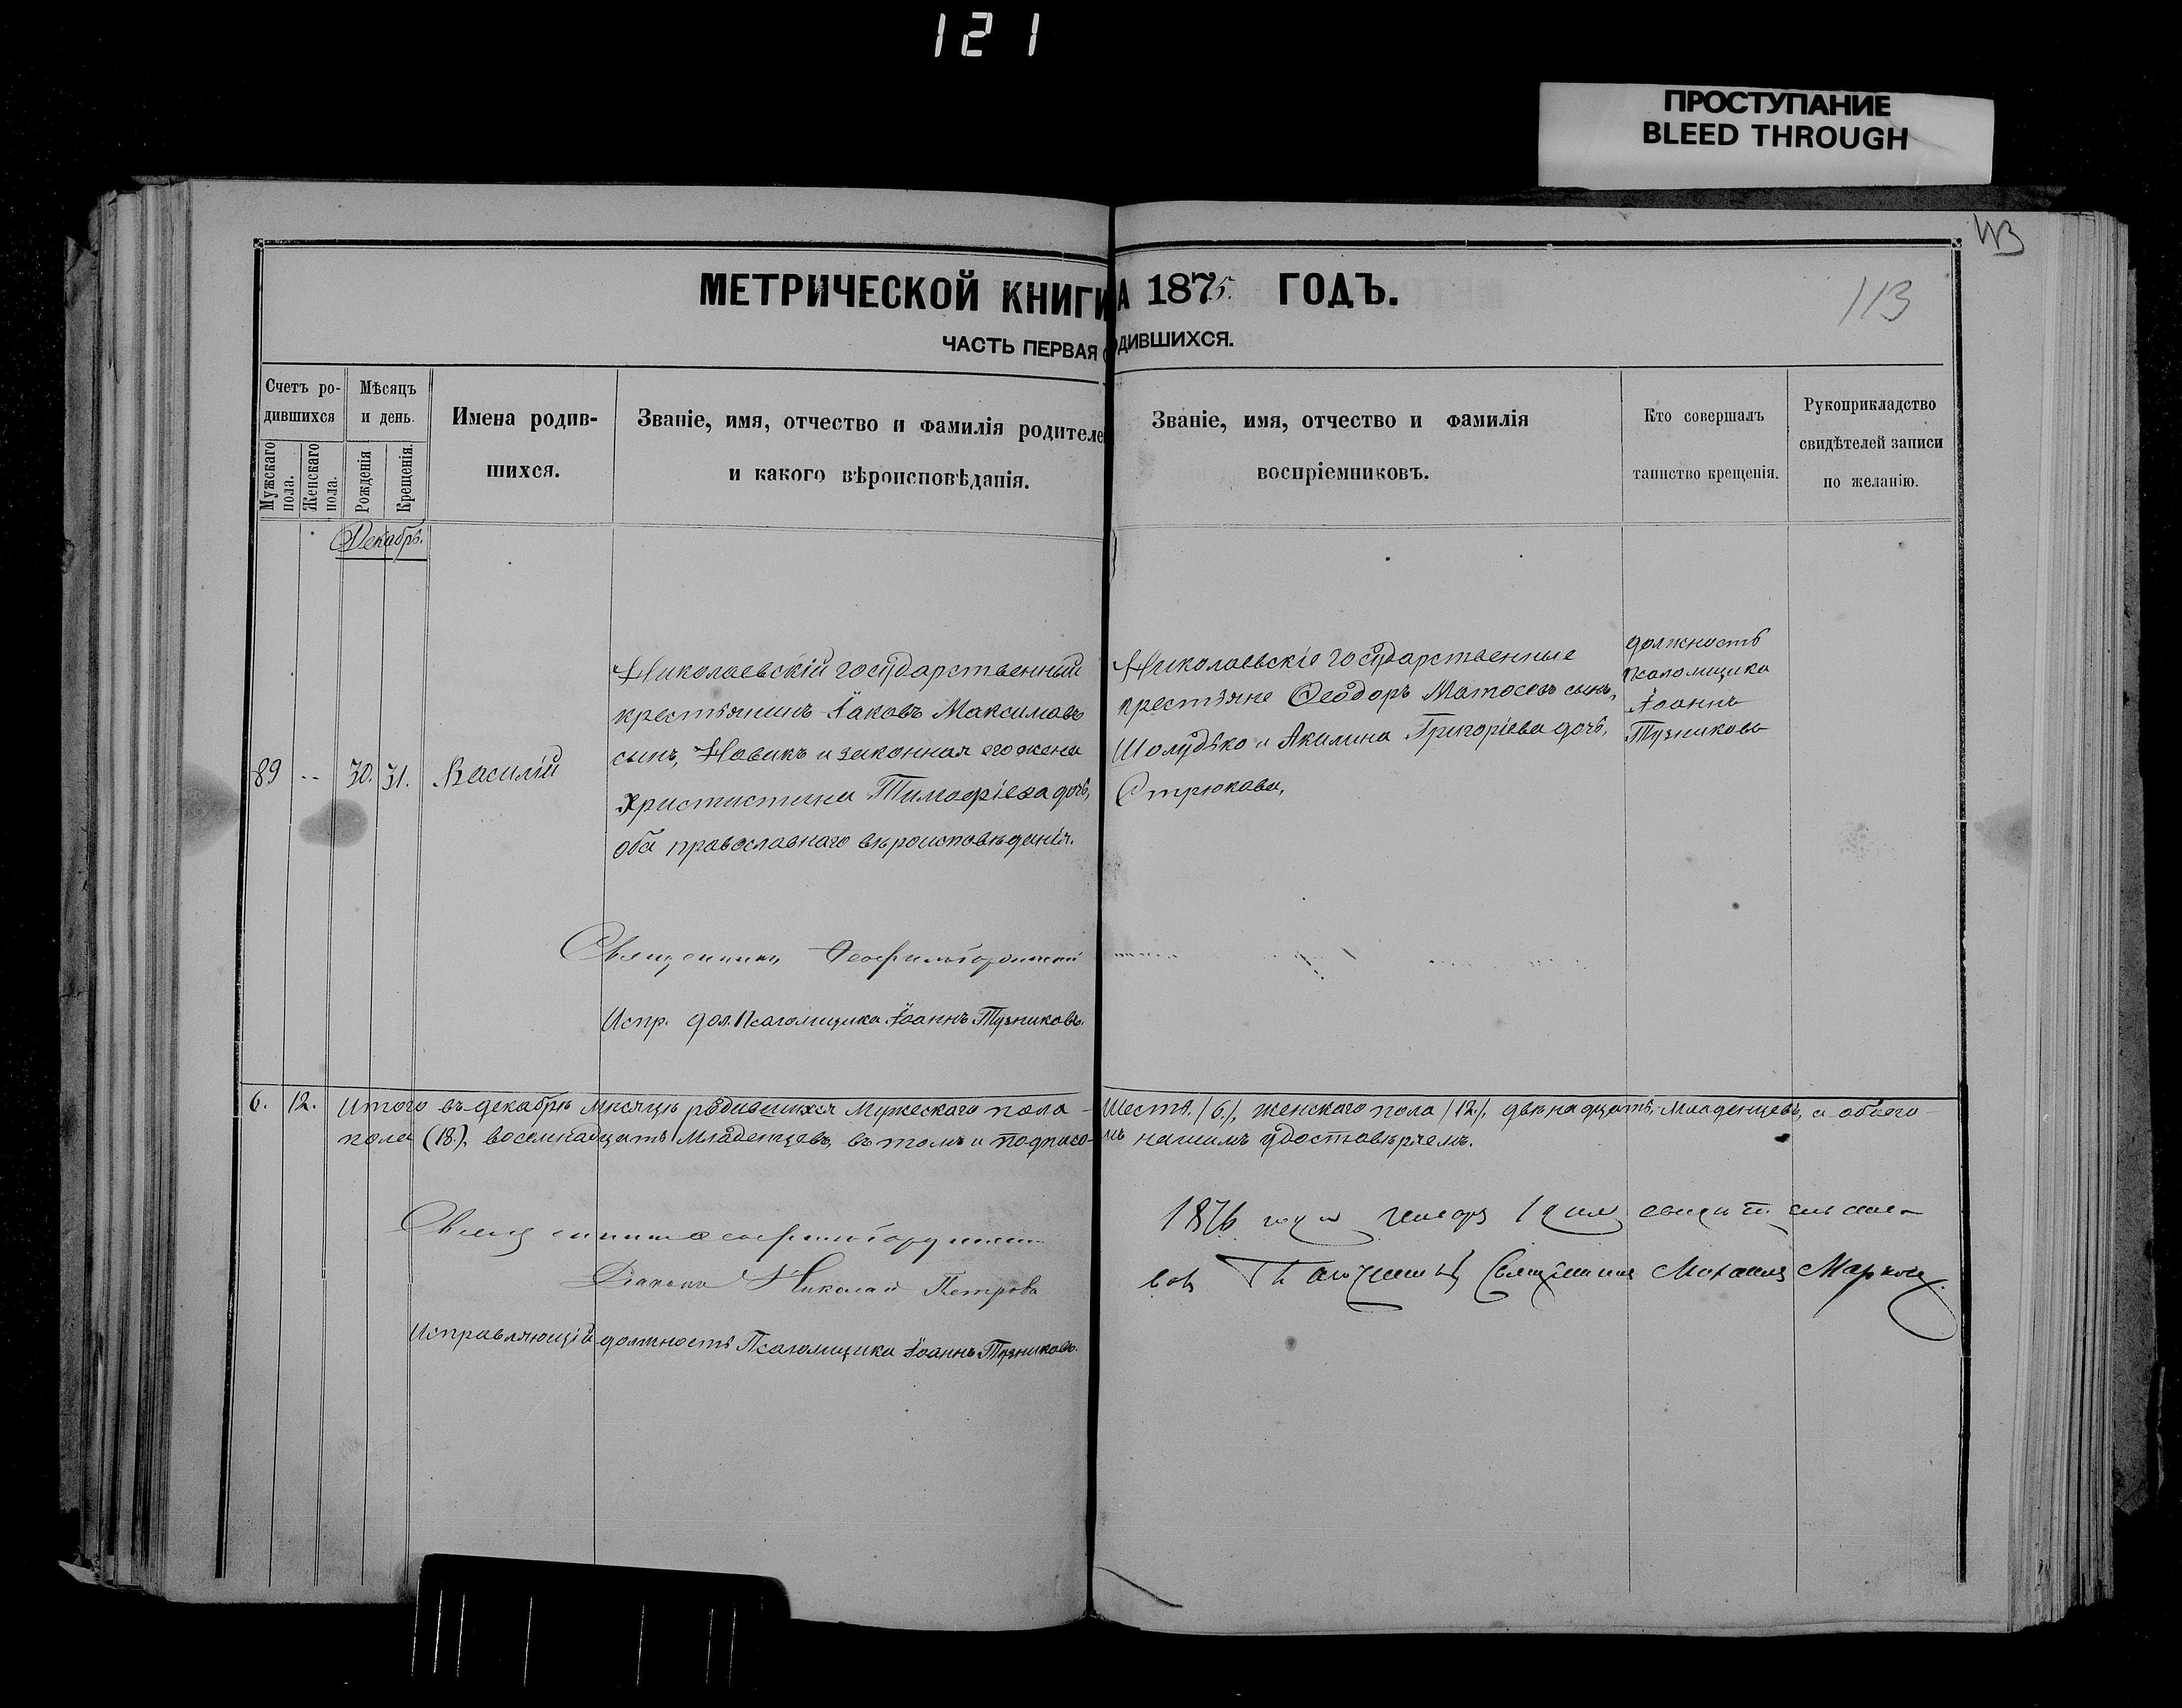 121
ПРОСТУПАНИЕ
BLEED THROUGH
113
113
МЕТРИЧЕСКОЙ КНИГИ
А 1875. ГОДЪ.
ЧАСТЬ ПЕРВАЯ
ДИВШИХСЯ.
Счетъ ро-
дившихся
Мужскаго пола.
Женскаго пола.
Мѣсяцъ
и день.
Рожденія
Крещенія.
Имена родив-
шихся.
Званіе, имя, отчество и фамилія родителе
и какого вѣроисповѣданія.
Званіе, имя, отчество и фамилія
воспріемниковъ.
Кто совершалъ
таинство крещенія.
Рукоприкладство
свидѣтелей записи
по желанію.
Декабрь.
89 -- 30. 31. Василій
Николаевскій государственный
крестьянинъ Іаковъ Максимовъ
сынъ, Новикъ и законная его жена
Христистина Тимофіева дочь,
оба православнаго вѣроисповѣданія.
Николаевскіе государственные
крестьяне Ѳеодоръ Матѳеевъ сынъ,
Шолудько и Акилина Григоріева дочь,
Стрюкова,
должность
Псаломщика
Іоаннъ
Тузниковъ
Священникъ
Испр. дол. Псаломщика Іоаннъ Тузниковъ.
6. 12. Итого въ декабрѣ мѣсяцѣ родившихся мужескаго пола - шесть /6./, женскаго пола /12./, двѣнадцать, младенцевъ, а обоего
пола (18.), восемнадцать младенцевъ, въ томъ и подписо-мъ нашимъ удостовѣряемъ.
Священникъ
Діаконъ Николай Петровъ
Исправляющій должность Псаломщика Іоаннъ Тузниковъ.
1876 года января 12
Священникъ Михаилъ Марков